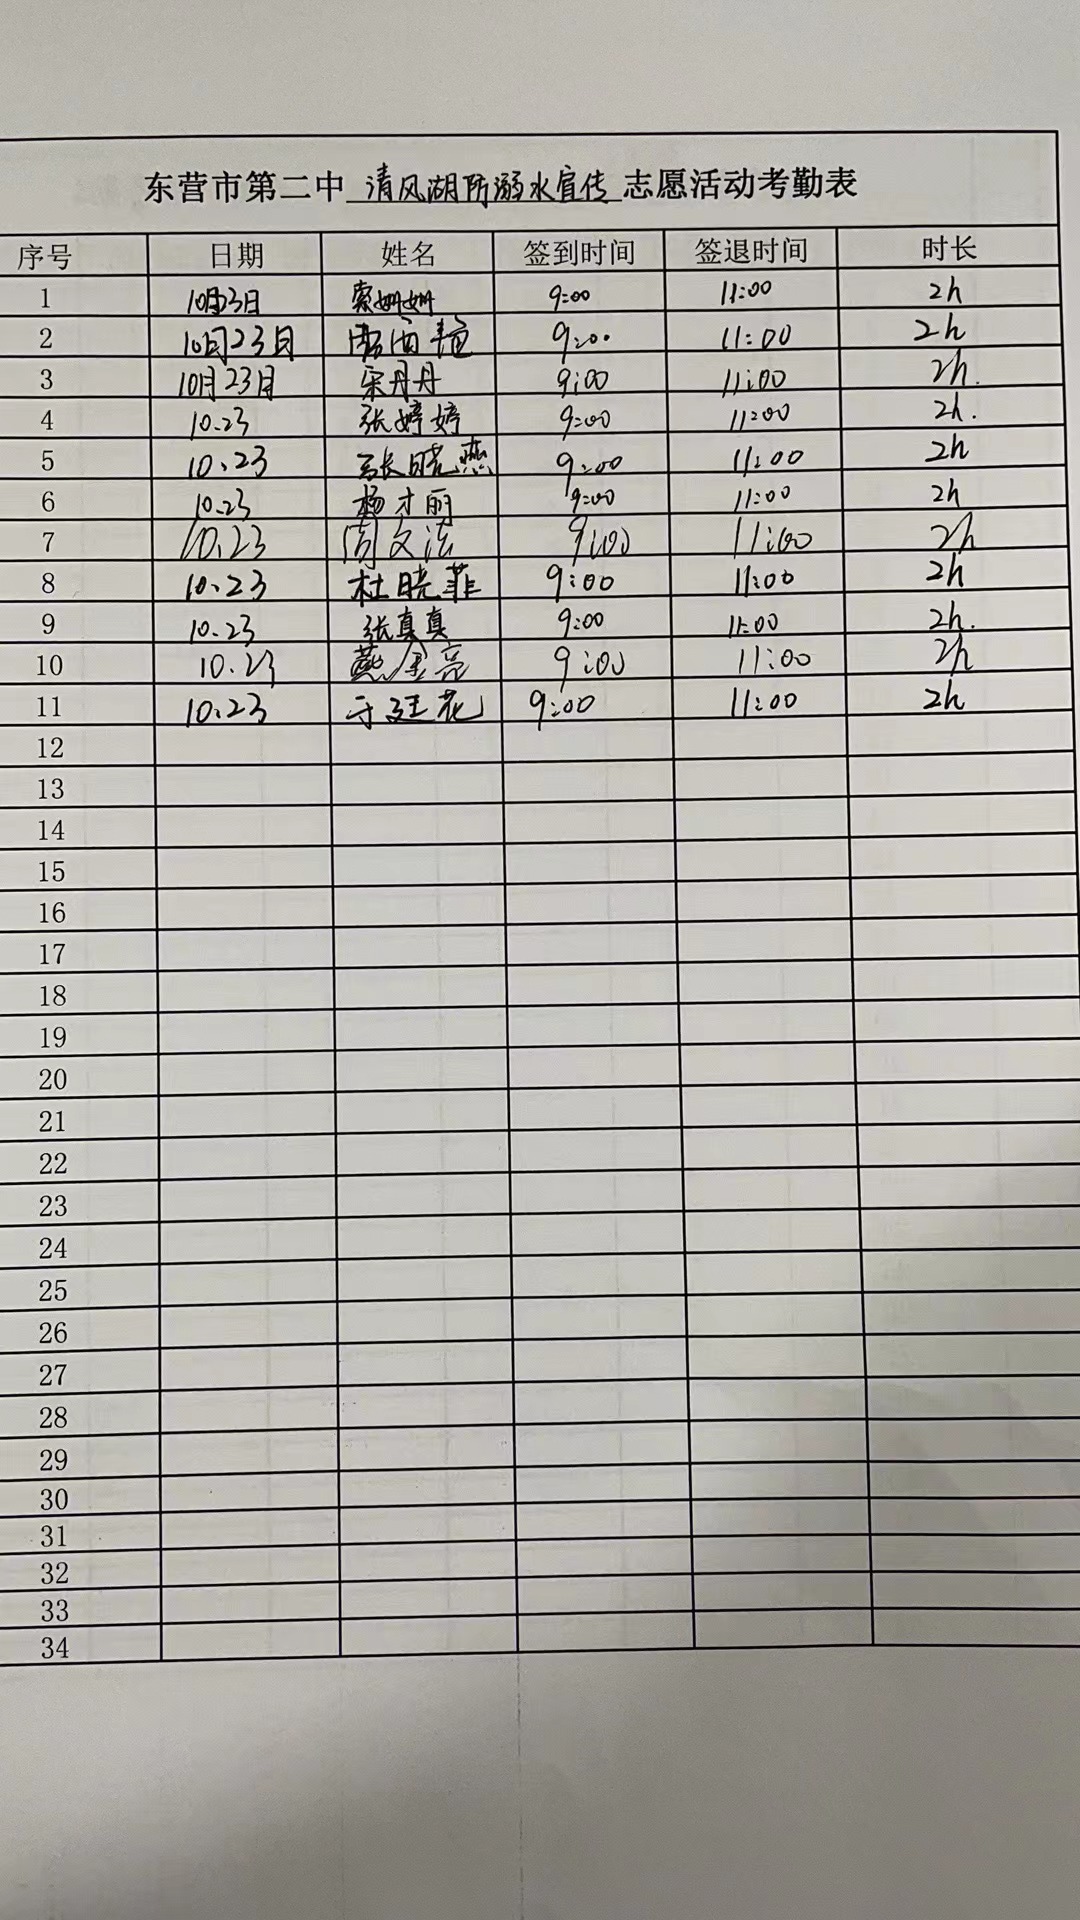 东营市第二中 清风湖防溺水宣传 志愿活动考勤表
序号 日期 姓名 签到时间 签退时间 时长
1 10月23日 索姗姗 9:00 11:00 2h
2 10月23日 9:00 11:00 2h
3 10月23日 宋丹丹 9:00 11:00 2h.
4 10.23 张婷婷 9:00 11:00 2h.
5 10.23 张晓燕 9:00 11:00 2h
6 10.23 杨才丽 9:00 11:00 2h
7 10.23 周文法 9:00 11:00 2h
8 10.23 杜晓菲 9:00 11:00 2h
9 10.23 张真真 9:00 11:00 2h.
10 10.23 燕金亮 9:00 11:00 2h
11 10.23 于廷花 9:00 11:00 2h
12
13
14
15
16
17
18
19
20
21
22
23
24
25
26
27
28
29
30
31
32
33
34